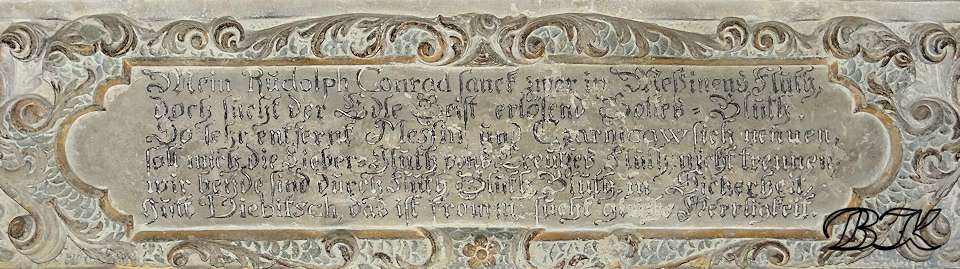 Mein Rudolph Conrad sanck zwar in Messinens Fluth,
doch sucht der Edle Geist erlösend Gottes-Bluth.
So sehr entfernt Messin und Czarnicaw sich nennen,
soll mich die Lieber-Fluth von Creutzes Fluth nicht trennen,
wir beyde sind durch Fluth Bluth Fluth in Sicherheit,
Hütt Diebitsch, das ist fromm, sucht Herrlichkeit.
BJK